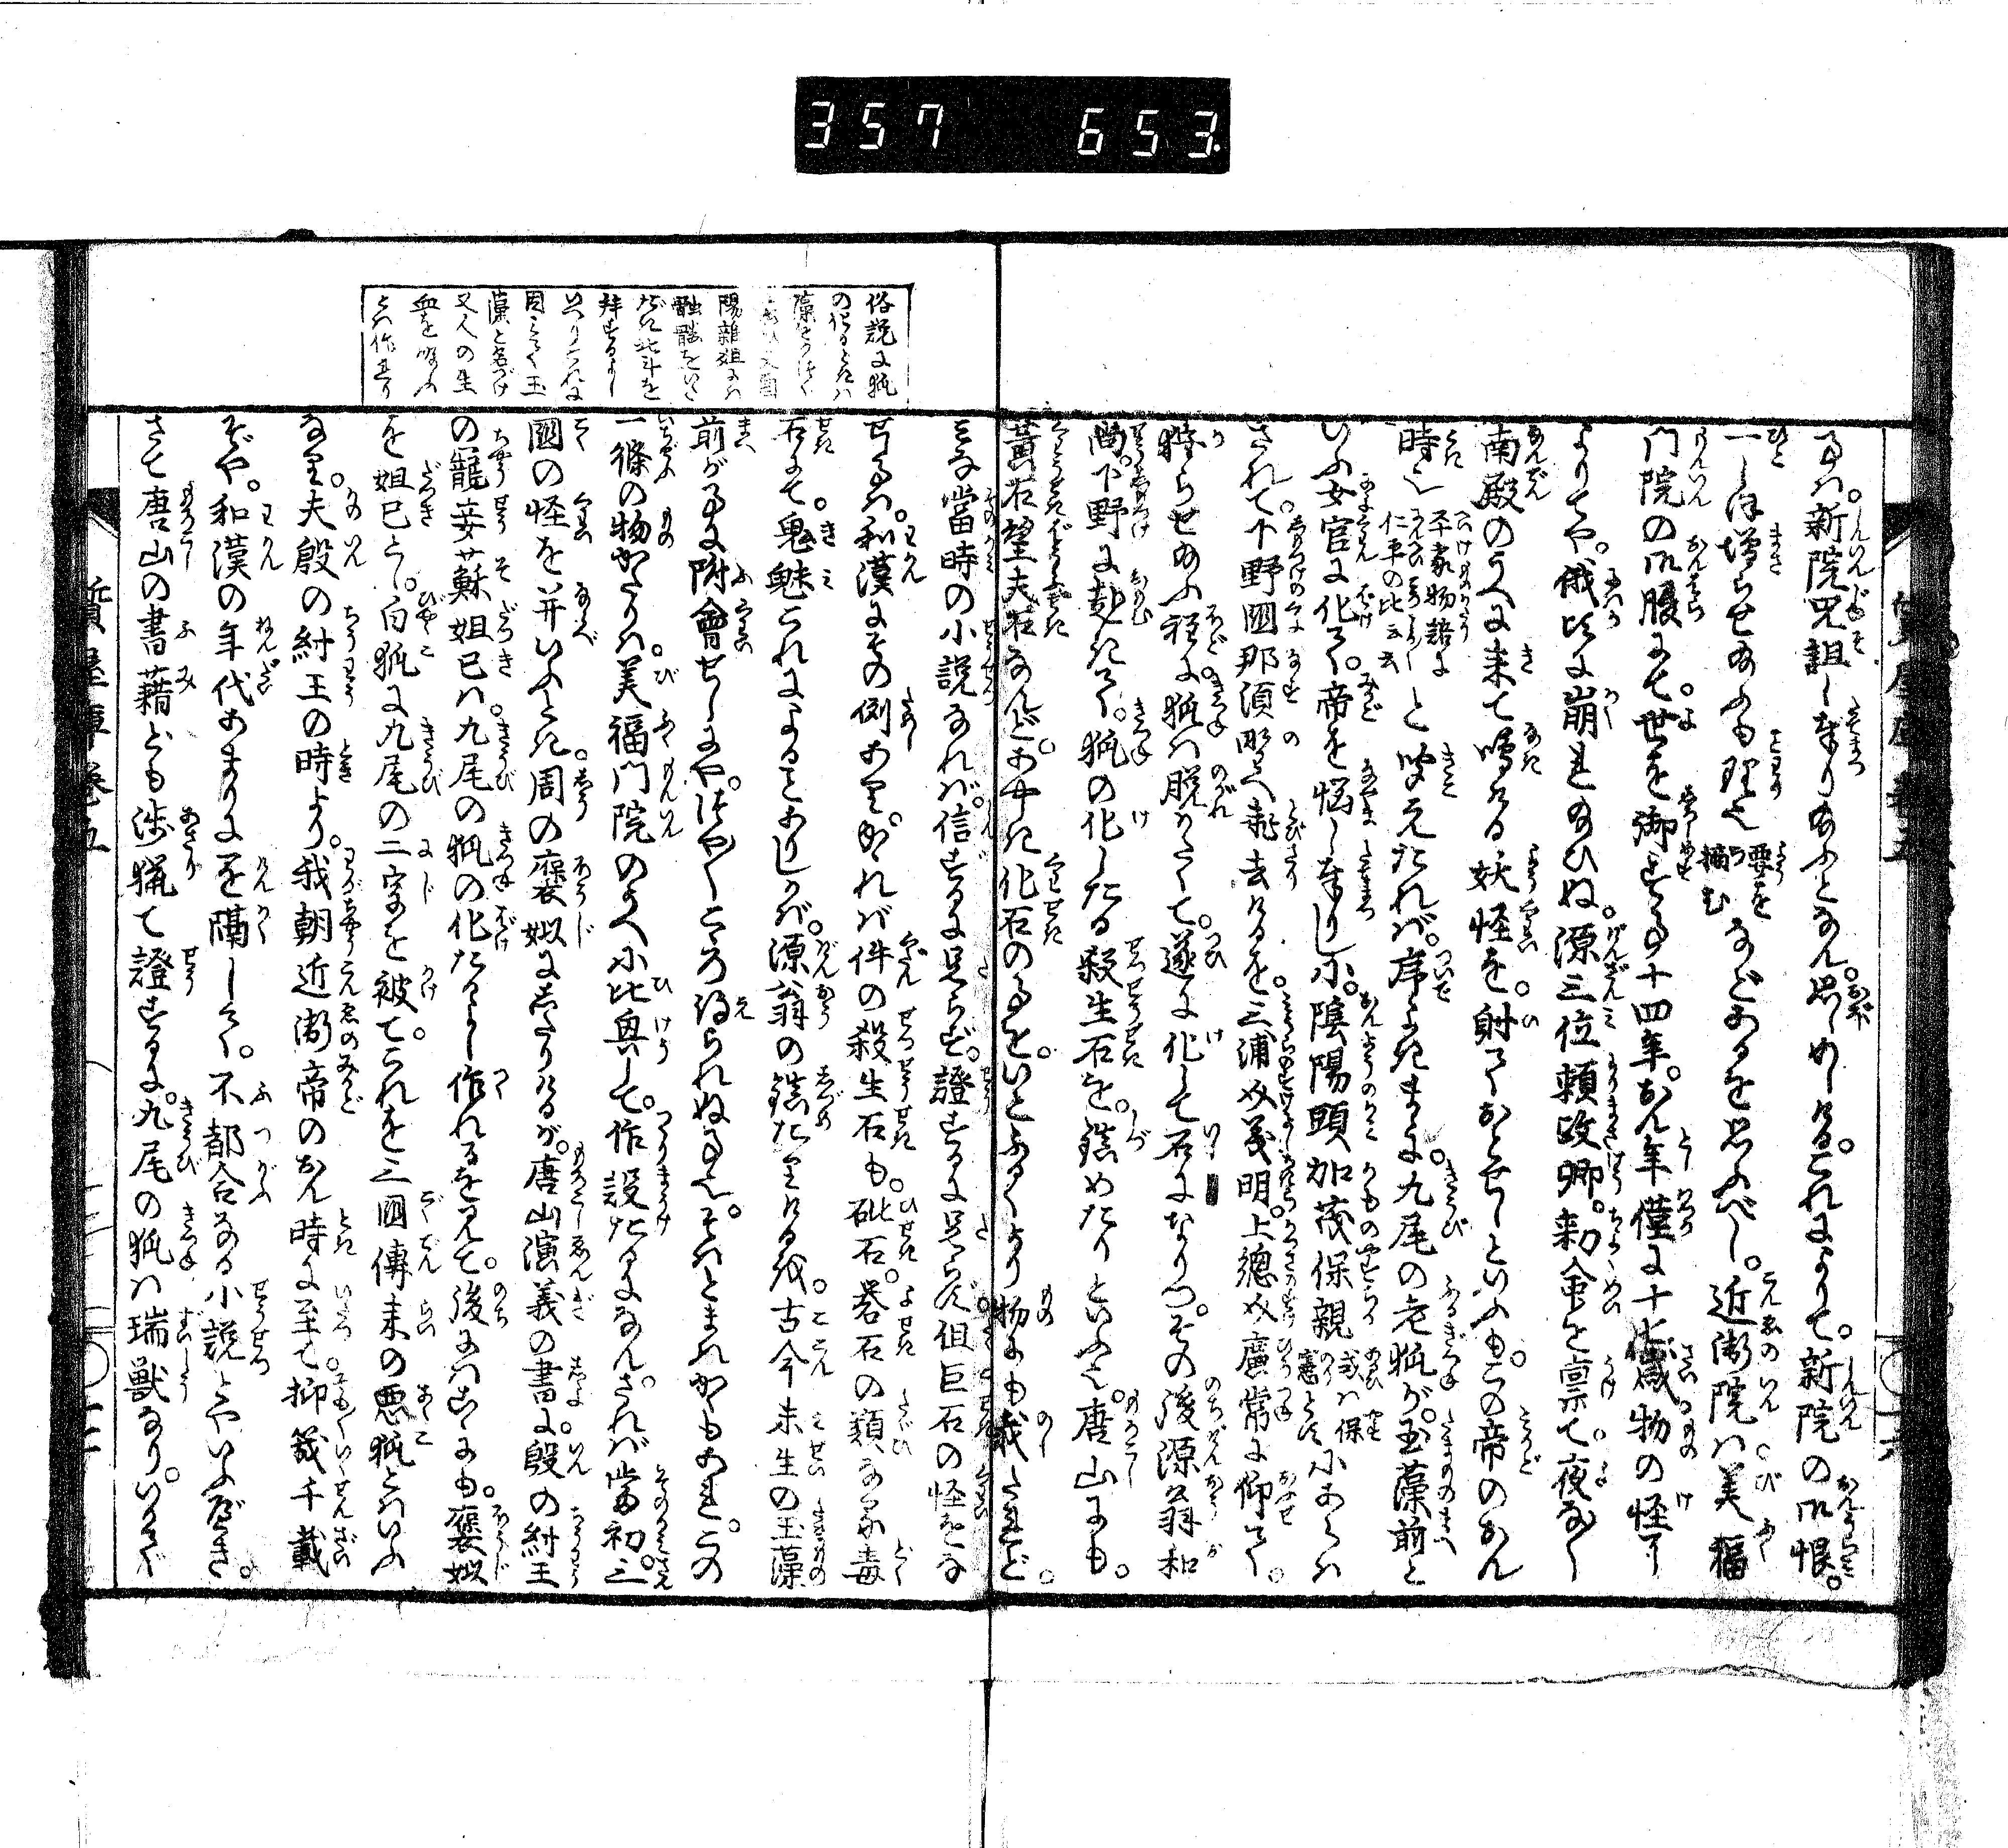 357 653.
事は。新院呪詛し奉り給ふとなん。思しめしける。これによりて。新院の御恨。
一しほ増らせ給ふも理也 要を摘む などあるを思ふべし。近衛院は美福
門院の御腹にて。世を御す事十四年。おん年僅に十七歳物の怪に
よりてや。俄頃に崩れ給ひぬ。源三位頼政卿。勅命を稟て。夜な〳〵
南殿のうへに来て鳴ける妖怪を。射ておとせしといふも。この帝のおん
時也 平家物語に仁平の比云云 と聞えたれば。序よきまゝに。九尾の老狐が。玉藻前と
いふ女官に化て。帝を悩し奉りしに。陰陽頭加茂保親 或は保憲とす にあらは
されて。下野國那須野へ飛去けるを。三浦介義明。上總介廣常に仰て。
狩らせ給ふ程に。狐は脱れかたくて。遂に化して石になりつ。その後源翁和
尚。下野に赴きて。狐の化したる殺生石を。鎮めたりといふ也。唐山にも。
黄石望夫石なんど。あやしき化石の事を。いとふるくより物にも載たれど。
みな當時の小説なれば。信ずるに足らず。證するに足らず。但巨石の怪をな
せるは。和漢にその例あり。かゝれば件の殺生石も。砒石。礜石の類なる毒
石にて。鬼魅これによることありしかば。源翁の鎮たりけるを。古今未生の玉藻
前が事に附會せしにや。つや〳〵こゝろ得られぬ事也。そはとまれかくもあれ。この
一條の物がたりは。美福門院のうへに比興して。作り設たるになん。されば當初。三
國の怪を并いふとき。周の褒姒にあたりけるが。唐山演義の書に。殷の紂王
の寵妾蘇妲己は。九尾の狐の化たるよし作れるを見て。後にはこゝにも。褒姒
を妲己とし。白狐に九尾の二字を被て。これを三國傳来の悪狐とはいふ
なり。夫殷の紂王の時より。我朝近衛帝のおん時に至て。抑幾千載
ぞや。和漢の年代あまりに間隔して。不都合なる小説とやいふべき。
さて唐山の書籍ども渉猟て證するに。九尾の狐は瑞獣なり。いかで
俗説に狐
の化るときは
藻をかつく
といふ酉
陽雑俎には
髑髏をいた
だき北斗を
拝するよし
いへりこれに
因みて玉
藻と名づけ
又人の生
血を吸ふ
とは作れり
質屋庫巻五